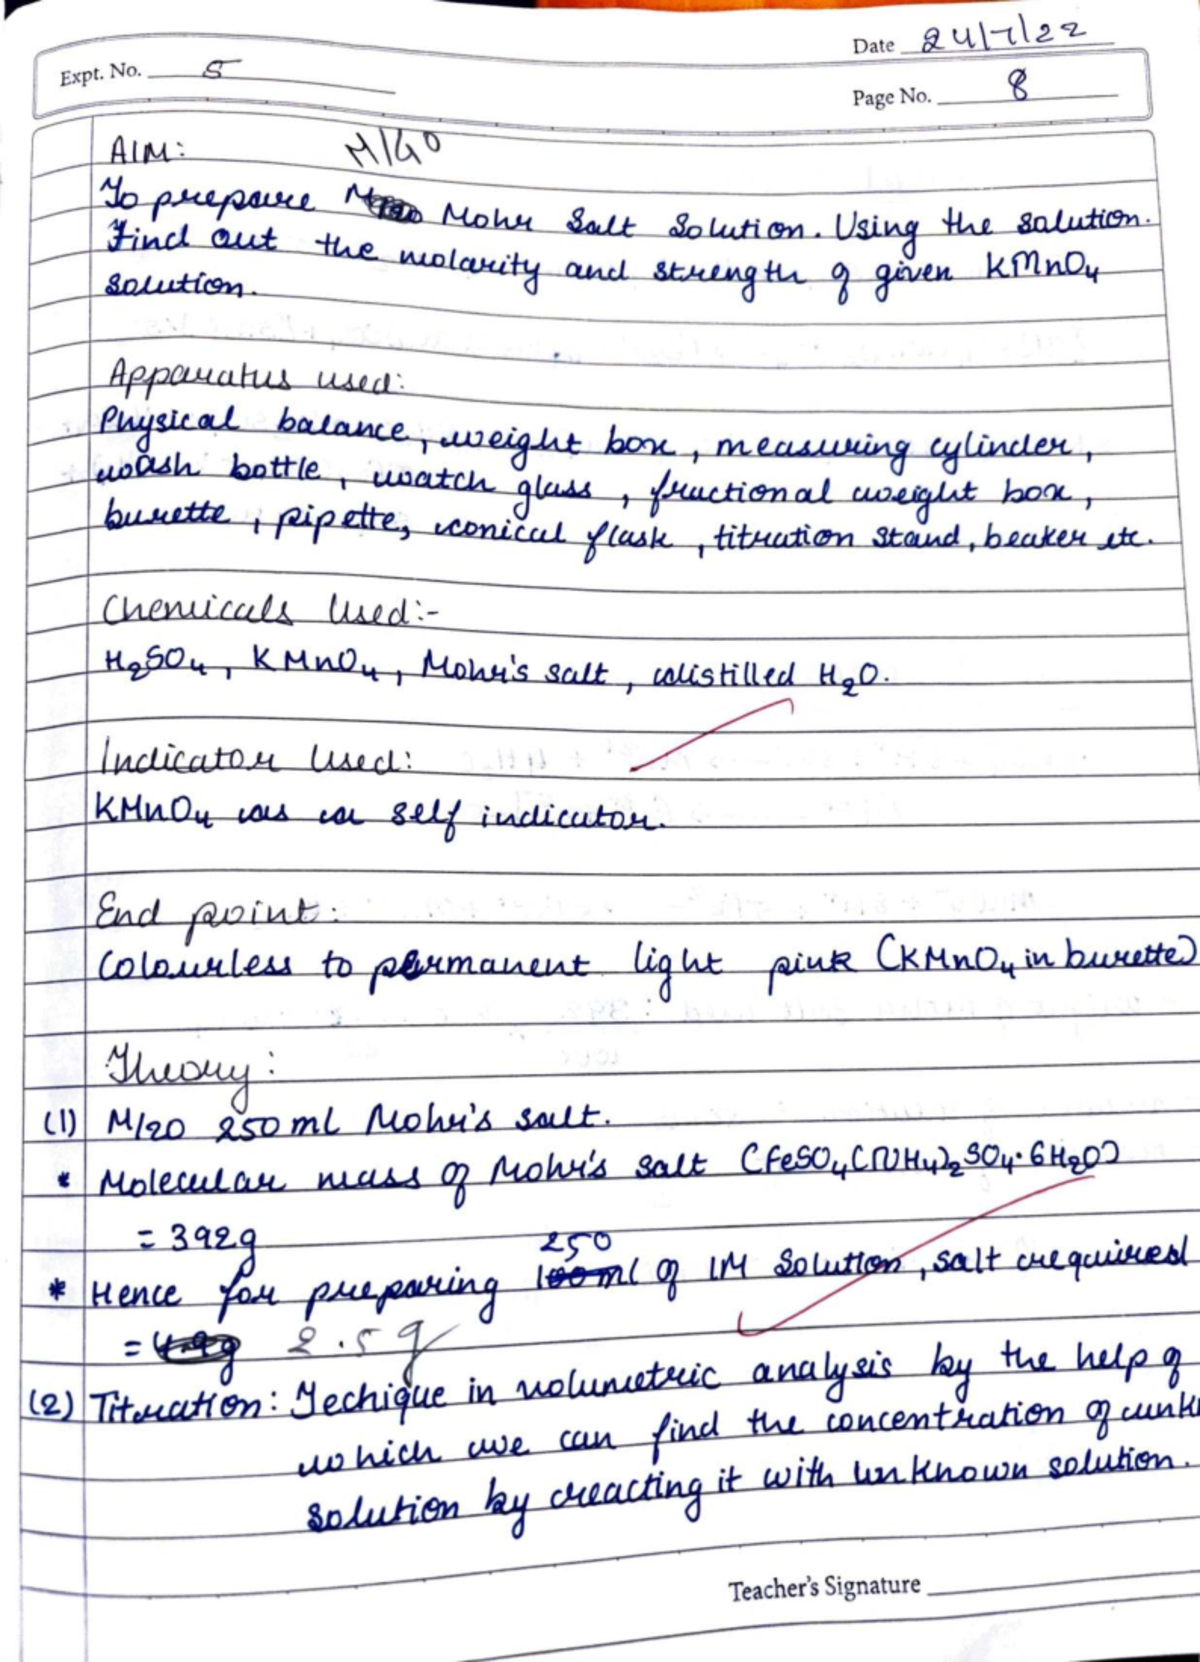 Date 24/7/22
Expt. No. 5
Page No. 8
AIM: M/40
To prepare Mohr Salt Solution. Using the solution.
Find out the molarity and strength of given KMnO4
solution.
Apparatus used:
Physical balance, weight box, measuring cylinder,
wash bottle, watch glass, fractional weight box,
burette, pipette, conical flask, titration stand, beaker etc.
Chemicals Used:-
H2SO4, KMnO4, Mohr's salt, distilled H2O.
Indicator Used:
KMnO4 as a self indicator.
End point:
Colourless to permanent light pink (KMnO4 in burette)
Theory:
(1) M/20 250ml Mohr's salt.
* Molecular mass of Mohr's salt (FeSO4(NH4)2SO4·6H2O)
= 392g
250
* Hence for preparing 100ml of 1M Solution, salt required
= 4.9g 2.5g
(2) Titration: Techique in volumetric analysis by the help of
which we can find the concentration of unk
solution by reacting it with unknown solution.
Teacher's Signature